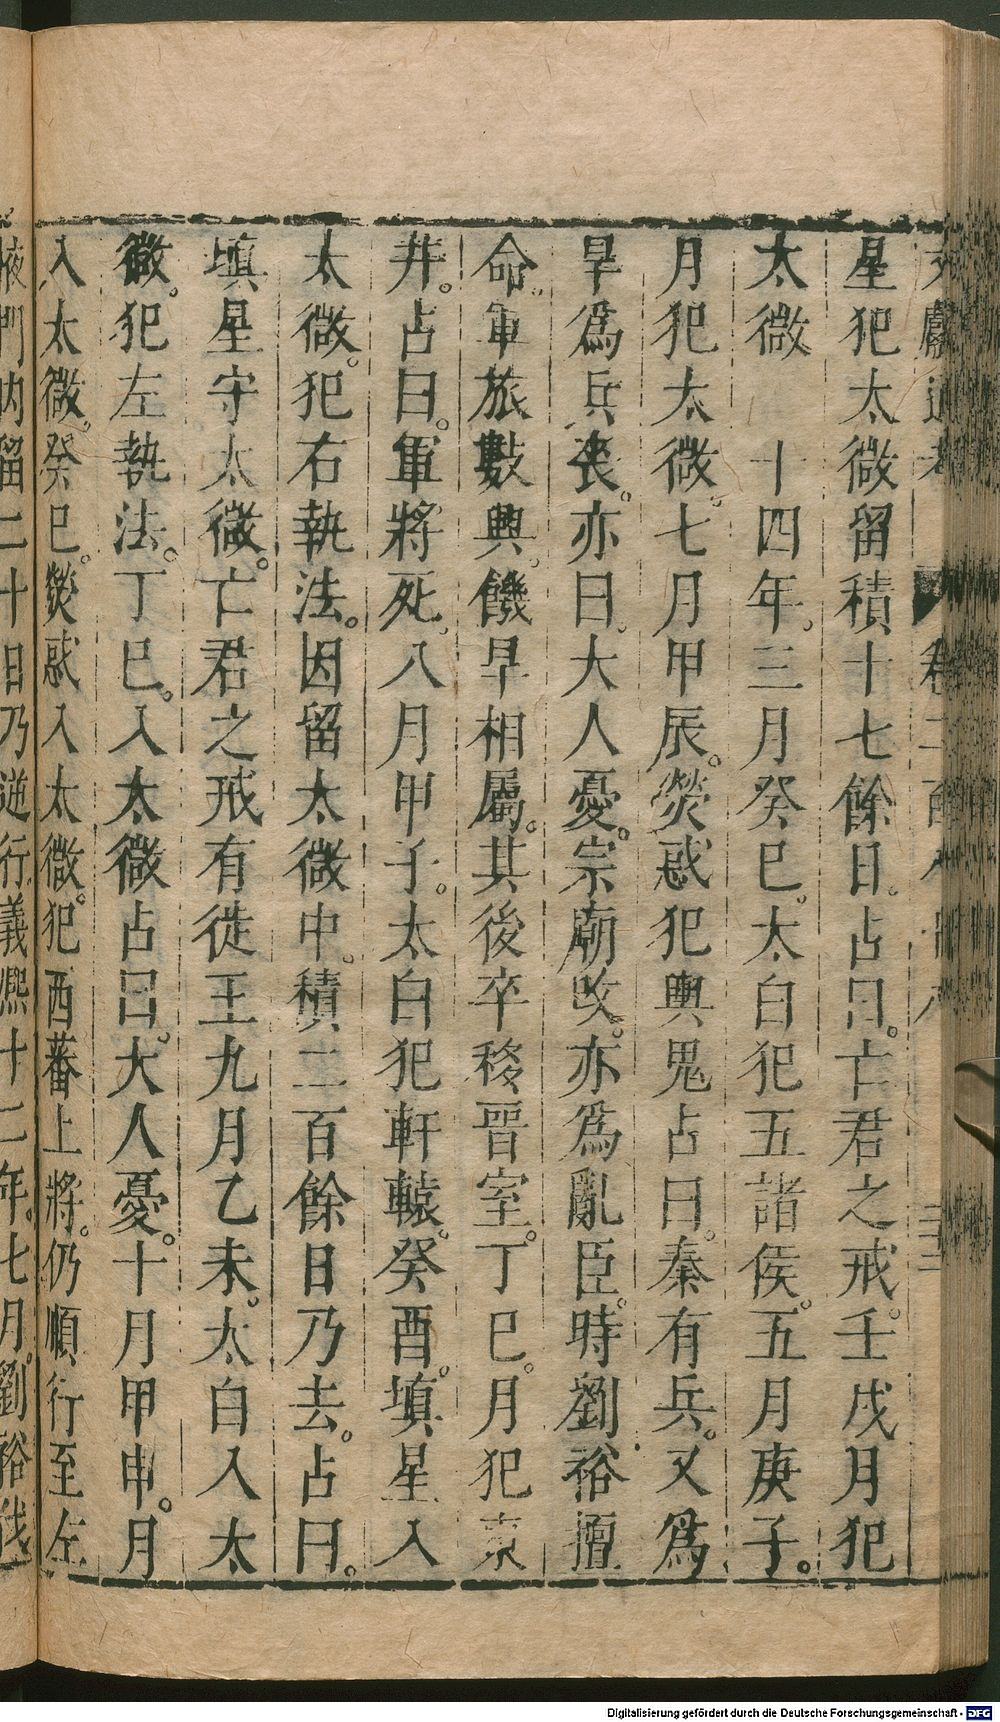 星犯太微留積十七餘日。占曰。亡君之戒。壬戌月犯
太微　十四年。三月癸巳。太白犯五諸侯。五月庚子。
月犯太微。七月甲辰。熒惑犯輿鬼占曰。秦有兵。又爲
旱爲兵喪。亦曰。大人憂。宗廟改。亦爲亂臣。時劉裕擅
命。軍旅數興。饑旱相屬。其後卒移晉室。丁巳。月犯東
井。占曰。軍將死。八月甲子。太白犯軒轅。癸酉。塡星入
太微。犯右執法。因留太微中。積二百餘日乃去。占曰。
塡星守太微。亡君之戒有徙王九月乙未。太白入太
微。犯左執法。丁巳。入太微占曰。大人憂。十月甲申。月
入太微。癸巳。熒惑入太微。犯西蕃上將。仍順行至左
掖門内留二十日乃逆行。義熙十二年。七月。劉裕伐
Digitalisierung gefördert durch die Deutsche Forschungsgemeinschaft - DFG